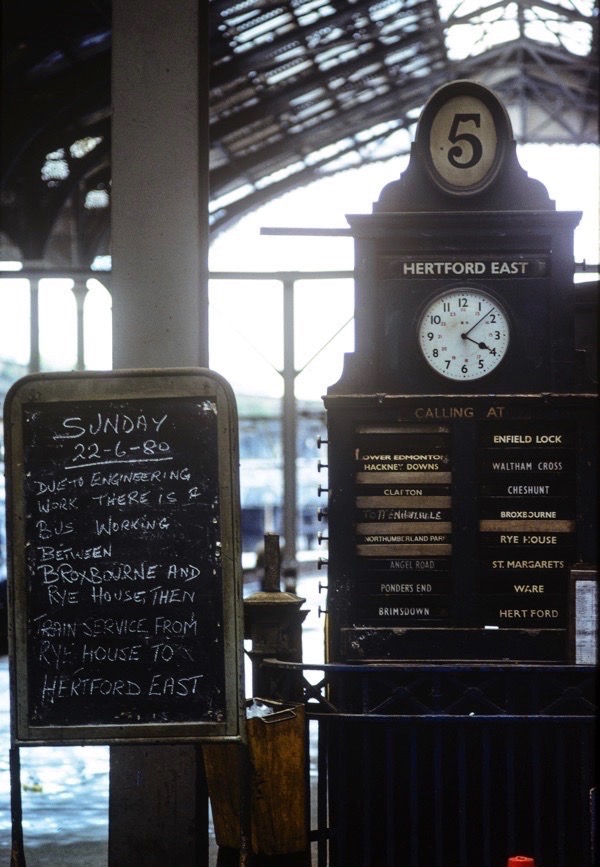 SUNDAY
22-6-80
DUE TO ENGINEERING
WORK THERE IS A
BUS WORKING
BETWEEN
BROXBOURNE AND
RYE HOUSE, THEN
TRAIN SERVICE FROM
RYE HOUSE TO
HERTFORD EAST
5
HERTFORD EAST
12
1
2
3
4
5
6
7
8
9
10
11
CALLING AT
LOWER EDMONTON
HACKNEY DOWNS
CLAPTON
NORTHUMBERLAND PARK
ANGEL ROAD
PONDERS END
BRIMSDOWN
ENFIELD LOCK
WALTHAM CROSS
CHESHUNT
BROXBOURNE
RYE HOUSE
ST. MARGARETS
WARE
HERTFORD